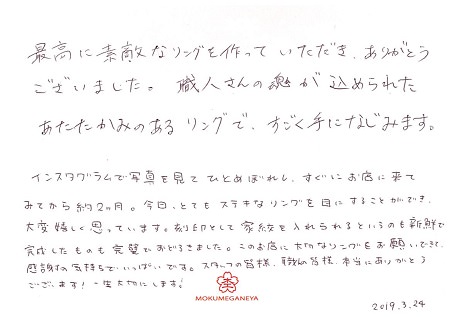 最高に素敵なリングを作っていただき、ありがとう
ございました。職人さんの魂が込められた
あたたかみのあるリングで、すごく手になじみます。
インスタグラムで写真を見てひとめぼれし、すぐにお店に来て
みてから約2ヶ月。今日、とてもステキなリングを目にすることができ、
大変嬉しく思っています。刻印として家紋を入れられるというのも新鮮で
完成したものも完璧でおどろきました。このお店に大切なリングをお願いできて、
感謝の気持ちでいっぱいです。スタッフの皆様、職人の皆様、本当にありがとう
ございます！一生大切にします！
MOKUMEGANEYA
2019.3.24